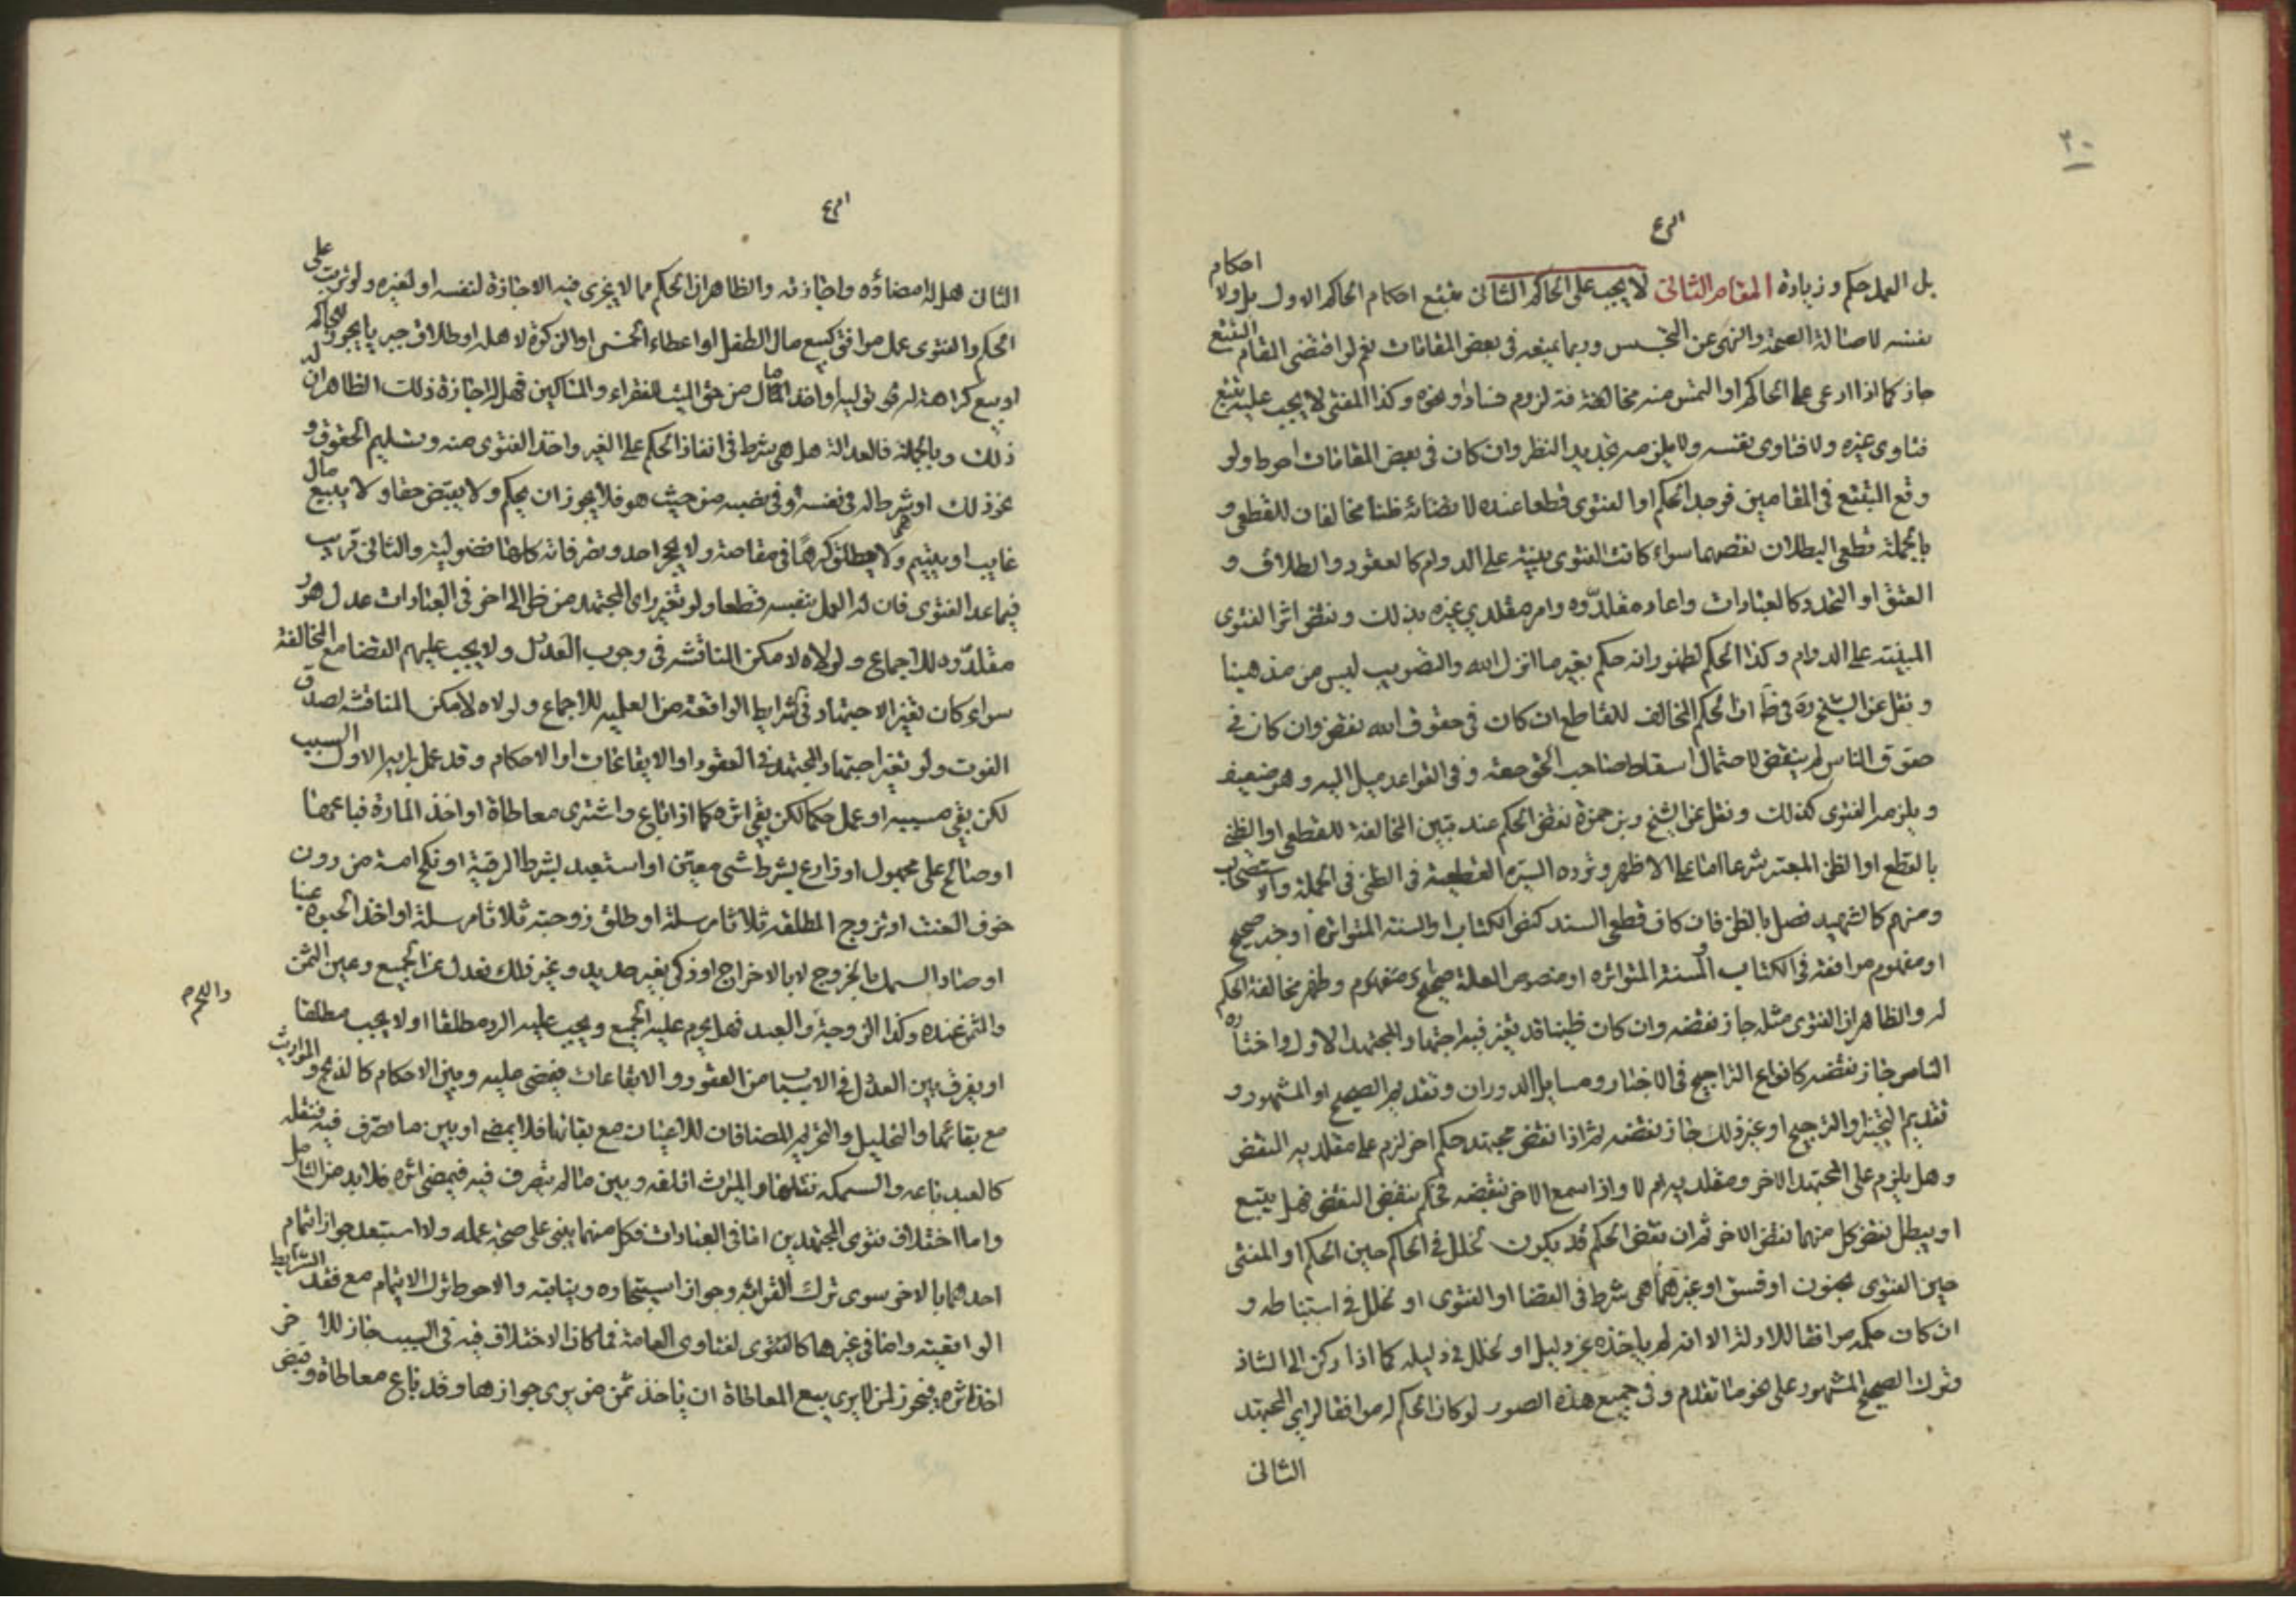 ٣٠
بل العمل حكم وزيادة المقام الثاني لا يجب على الحاكم الثاني تتبع احكام الحاكم الاول بل ولا احكام
نفسه لاصالة الصحة والنهي عن التجسس وربما يمنع في بعض المقامات نعم لو اقتضى المقام التتبع
جاز كما اذا ادعى على الحاكم او التمس منه مخالفة لزوم فساد او نحوه وكذا المفتي لا يجب عليه تتبع
فتاوى غيره ولا فتاوى نفسه ولا يلزمه تجديد النظر وان كان في بعض المقامات احوط ولو
وقع التتبع في المقامين فوجد الحكم او الفتوى قطعا عنده لا مخالفان للقطعي و
بالجملة قطعي البطلان نقضهما سواء كانت الفتوى مبنية على الدوام كالعقود والطلاق و
العتق او التجدد كالعبادات واعاد مقلدوه وامر مقلدي غيره بذلك ونقض اثر الفتوى
المبنية على الدوام وكذا الحكم لظهور انه حكم بغير ما انزل الله والتصويب ليس من مذهبنا
ونقل عن الشيخ ره في ط ان الحكم المخالف للقاطع ان كان في حقوق الله نقض وان كان في
حقوق الناس لم ينقض لاحتمال اسقاط صاحب الحق حقه وفي القواعد ميل اليه وهو ضعيف
ويلزم الفتوى كذلك ونقل عن الشيخ وبن حمزة نقض الحكم عند تبين المخالفة للقطعي او الظني
بالقطع او الظن المعتبر شرعا اما على الاظهر وترده السيرة القطعية في الظني في الجملة والاستصحاب
ومنهم كالشهيد فصل بالظن فان كان قطعي السند كنص الكتاب او السنة المتواترة او خبر صحيح
او مفهوم موافقة في الكتاب والسنة المتواترة او منصوص العلة صحيح ومفهوم وظهر مخالفة الحكم
له والظاهر ان الفتوى مثله جاز نقضه وان كان ظنيا قد تغير فيه اجتهاد المجتهد الاول واختاره
الناس جاز نقضه كانواع التراجيح في الاخبار ومسايل الدوران وتقديم الصحيح او المشهور و
تقديم التخيير والترجيح او غير ذلك جاز نقضه ثم اذا نقض مجتهد حكم اخر لزم على مقلديه النقض
وهل يلزم على المجتهد الاخر ومقلديه ام لا واذا سمع الاخر نقضه فحكم بنقض النقض فهل يتبع
او يبطل نقض كل منهما نقض الاخر ثم ان نقض الحكم قد يكون لخلل في الحاكم حين الحكم او المفتي
حين الفتوى بجنون او فسق او غيرهما هي شرط في القضا او الفتوى او لخلل في استنباطه و
ان كان حكمه موافقا للادلة الا انه لم ياخذه عن دليل او لخلل في دليله كما اذا ركن الى الشاذ
وترك الصحيح المشهور على نحو ما تقدم وفي جميع هذه الصور لو كان الحكم له موافقا لراي المجتهد
الثاني
الثاني هل له امضاؤه واجازته والظاهر ان الحكم مما لا يجرى فيه الاجازة لنفسه او لغيره ولو ترتب على
الحكم والفتوى عمل موافق كبيع مال الطفل او اعطاء الخمس او الزكوة لاهله او طلاق جبر يا يجوز للحاكم
او بيع كراهة ثم توليه او اخذ المال من حق الميت للفقراء والمساكين فهل له اجازة ذلك الظاهر ان له
ذلك وبالجملة فالعدالة هل هي شرط في انفاذ الحكم على الغير واخذ الفتوى منه وتسليم الحقوق و
نحو ذلك او شرط له في نفسه وفي نصبه من حيث هو فلا يجوز ان يحكم ولا يقبض حقا ولا يبيع مال
غايب او يتيم ولا يطلق كرها في مقاصة ولا يجبر احد وتصرفاته كلها فضولية والثاني قريب
فيما عدا الفتوى فان له العمل بنفسه قطعا ولو تغير راى المجتهد من ظن الى اخر في العبادات عدل هو و
مقلدوه للاجماع ولولاه لامكن المناقشة في وجوب العدول ولا يجب عليهم القضا مع المخالفة
سواء كان تغير الاجتهاد في شرايط الواقعة من العلمية للاجماع ولولاه لامكن المناقشة لصدق
الفوت ولو تغير اجتهاد المجتهد في العقود او الايقاعات او الاحكام وقد عمل برايه الاول السبب
لكن بقي مسببه او عمل حكما لكن بقي اثره كما اذا باع واشترى معاطاة او اخذ المارة فباعها
او صالح على مجهول او زارع بشرط شي معين او استعبد بشرط الرقية او نكح امة من دون
خوف العنت او تزوج المطلقه ثلاثا مرسلة او طلق زوجته ثلاثا مرسلة او اخذ الحبوة عينا
او صاد السمك بالخروج لا بالاخراج او ذكى بغير حديد وغير ذلك فعدل عن الجميع وعين الثمن
والثمن عنده وكذا الزوجة والعبد فهل يحرم عليه الجميع ويجب عليه الرد مطلقا او لا يجب مطلقا
واللحم
او يفرق بين العدول في الاسباب من العقود والايقاعات فيمضي عليه وبين الاحكام كالذبح والمواريث
مع بقائها والتحليل والتحريم المضافان للاعيان مع بقائها فلا يمضي او بين ما تصرف فيه فنقله
كالعبد باعه والسمكه نقلها والميراث اتلفه وبين ما لم يتصرف فيه فيمضى اثره فلا بد من التامل
واما اختلاف فتوى المجتهدين اما في العبادات فكل منهما يبني على صحة عمله ولا استبعد جواز ائتمام
احدهما بالاخر سوى ترك القرائه وجواز استيجاره ونيابته والاحوط ترك الايتمام مع فقد الشرايط
الواقعية واما في غيرها كالفتوى لفتاوى العامة فما كان الاختلاف فيه في السبب جاز للاخر
اخذ اثره فيجوز لمن لا يرى بيع المعاطاة ان ياخذ ثمن من يرى جوازها وقد باع معاطاة وقبض